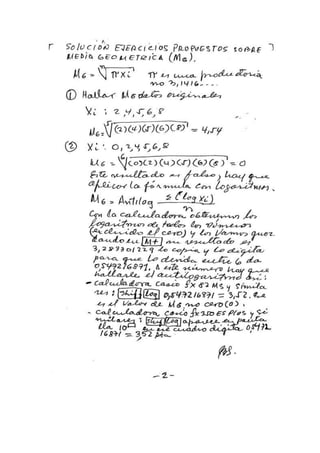 SOLUCIÓN EJERCICIOS PROPUESTOS SOBRE
MEDIA GEOMETRICA (MG).
MG = ⁿ√πxi π es una productoria
no 3,1416....
① Hallar MG datos originales
Xi : 2, 4, 5, 6, 8
MG = ⁵√(2)(4)(5)(6)(8) = 4,54
② Xi : 0, 2, 4, 5, 6, 8
MG = ⁶√(0)(2)(4)(5)(6)(8) = 0
Este resultado es falso; hay que
aplicar la fórmula con logaritmos.
MG = Antilog Σ(log xi)
n
Con la calculadora obtenemos los
logaritmos de todos los números
(excluido el cero) y los vamos guar
dando en M+ su resultado es
3,287301229 lo copia y lo digita
para que lo devida entre 6 da
0,547216871, a este número hay que
hallarle el antilogaritmo así:
- calculadora casio fx 82 MS y simila
res: Shift log 0,547216871 = 3,52. Ese
es el valor de MG no cero (0).
- calculadora, casio fx 350 ES Plus y si
milares: Shift log aparece en panta
lla 10▫ en el cuadro digita 0,5472
16871 = 3,52 pta
- 2 -